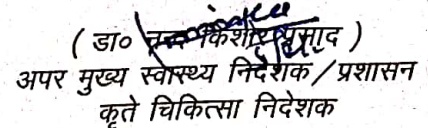 ( डा० किशोर प्रसाद )
अपर मुख्य स्वास्थ्य निदेशक / प्रशासन
कृते चिकित्सा निदेशक